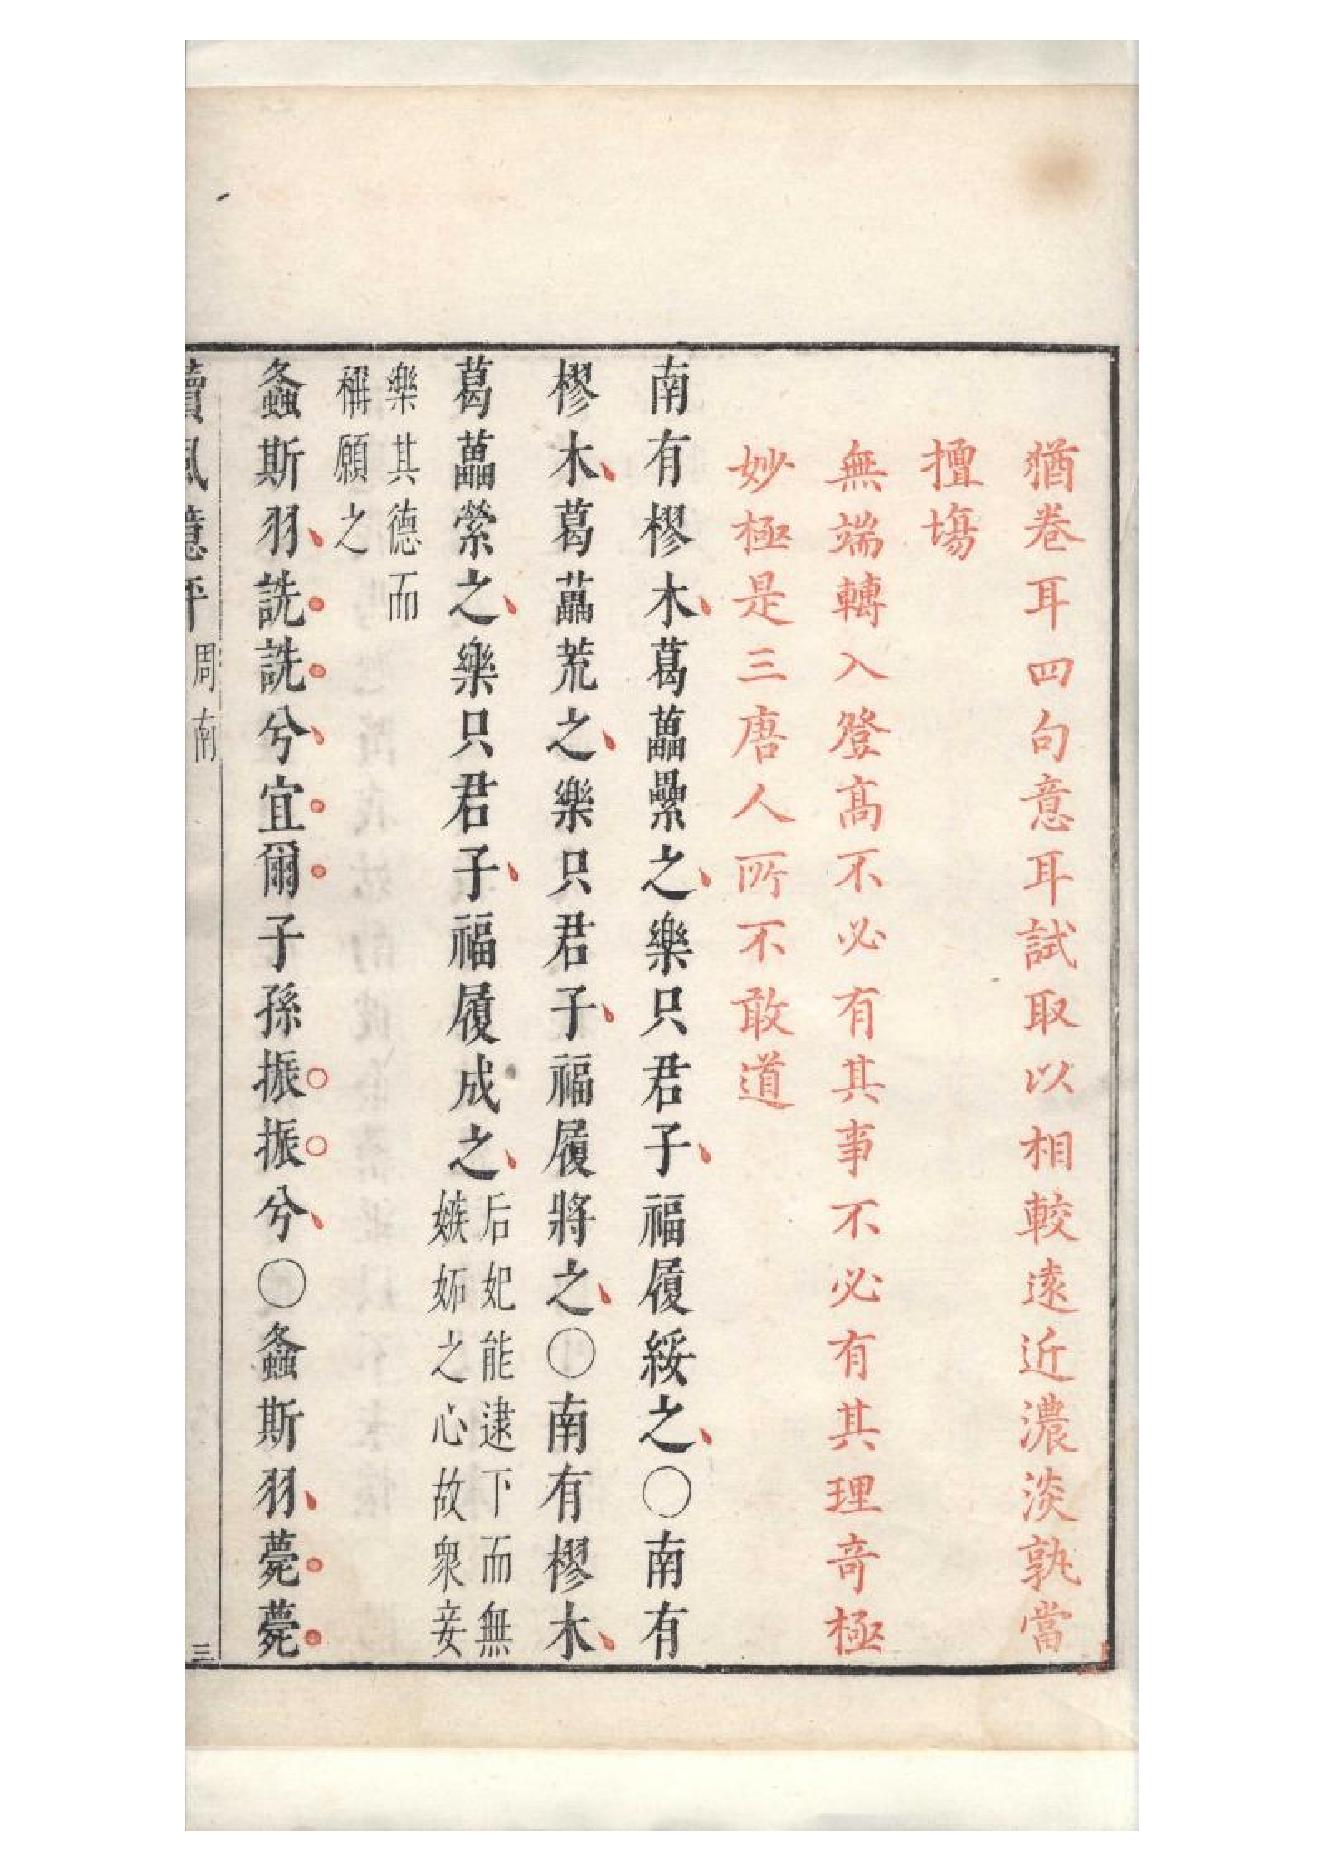 猶卷耳四句意耳試取以相較遠近濃淡孰當
擅塲
無端轉入登高不必有其事不必有其理奇極
妙極是三唐人所不敢道
南有樛木葛藟纍之樂只君子福履綏之〇南有
樛木葛藟荒之樂只君子福履將之〇南有樛木
葛藟縈之樂只君子福履成之
后妃能逮下而無
嫉妬之心故衆妾
樂其德而
稱願之
螽斯羽詵詵兮宜爾子孫振振兮〇螽斯羽薨薨
讀風臆評 周南 三